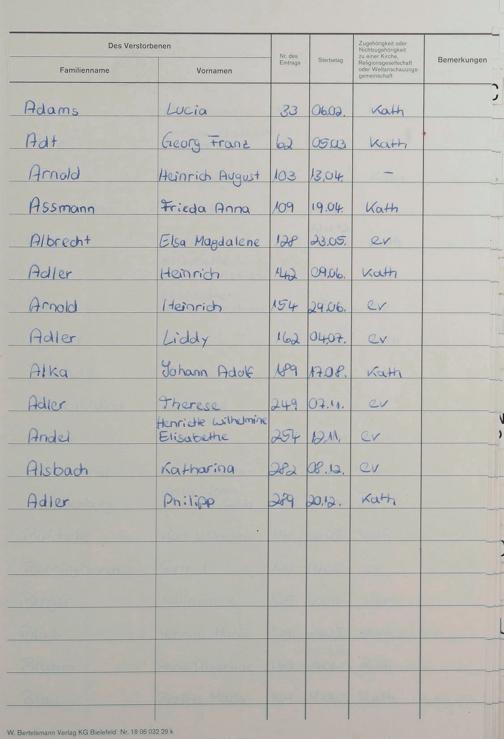 Des Verstorbenen
Familienname Vornamen Nr. des Eintrags Sterbetag Zugehörigkeit oder Nichtzugehörigkeit zu einer Kirche, Religionsgesellschaft oder Weltanschauungsgemeinschaft Bemerkungen
Adams Lucia 33 06.02. Kath
Adt Georg Franz 62 05.03 Kath
Arnold Heinrich August 103 13.04. –
Assmann Frieda Anna 109 19.04. Kath
Albrecht Elsa Magdalene 128 23.05. ev
Adler Heinrich 142 09.06. Kath
Arnold Heinrich 154 29.06. ev
Adler Liddy 162 04.07. ev
Alka Johann Adolf 189 17.08. Kath
Adler Therese 249 07.11. ev
Henriette Wilhelmine
Andel Elisabethe 254 12.11. ev
Alsbach Katharina 282 08.12. ev
Adler Philipp 289 20.12. Kath
W. Bertelsmann Verlag KG Bielefeld Nr. 18 06 032 29 k